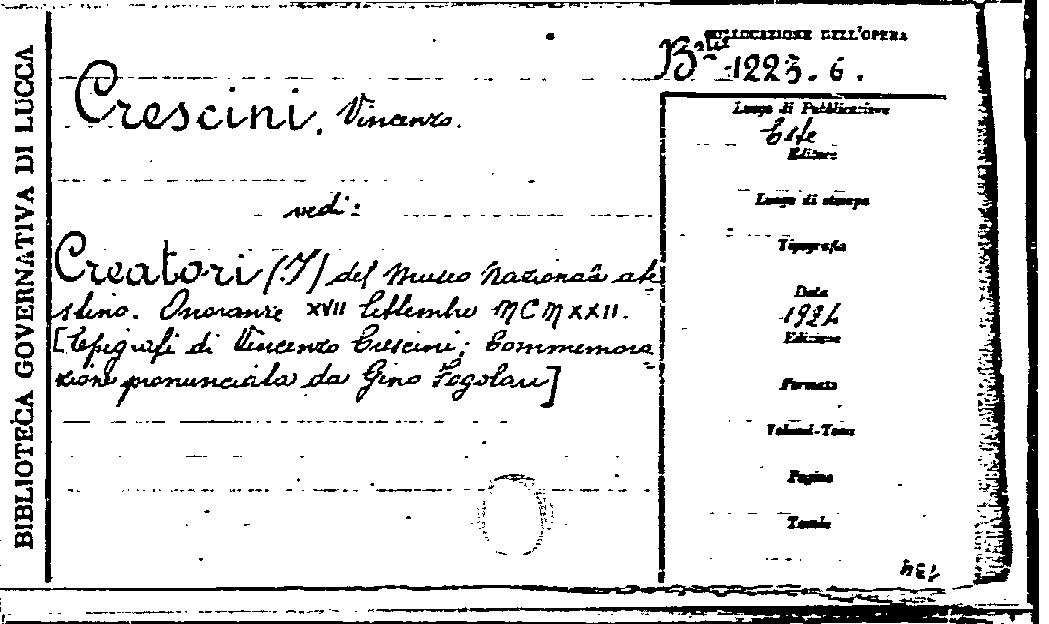 BIBLIOTECA GOVERNATIVA DI LUCCA
COLLOCAZIONE DELL'OPERA
B.ta 1223.6.
Crescini, Vincenzo.
vedi:
Creatori (I) del Museo Nazionale ate
stino. Onoranze XVII Settembre MCMXXII.
[Epigrafi di Vincenzo Crescini; Commemora
zione pronunciata da Gino Fogolari]
Luogo di Pubblicazione
Este
Editore
Luogo di stampa
Tipografia
Data
192
Edizione
Formato
Volumi-Tomi
Pagine
Tavole